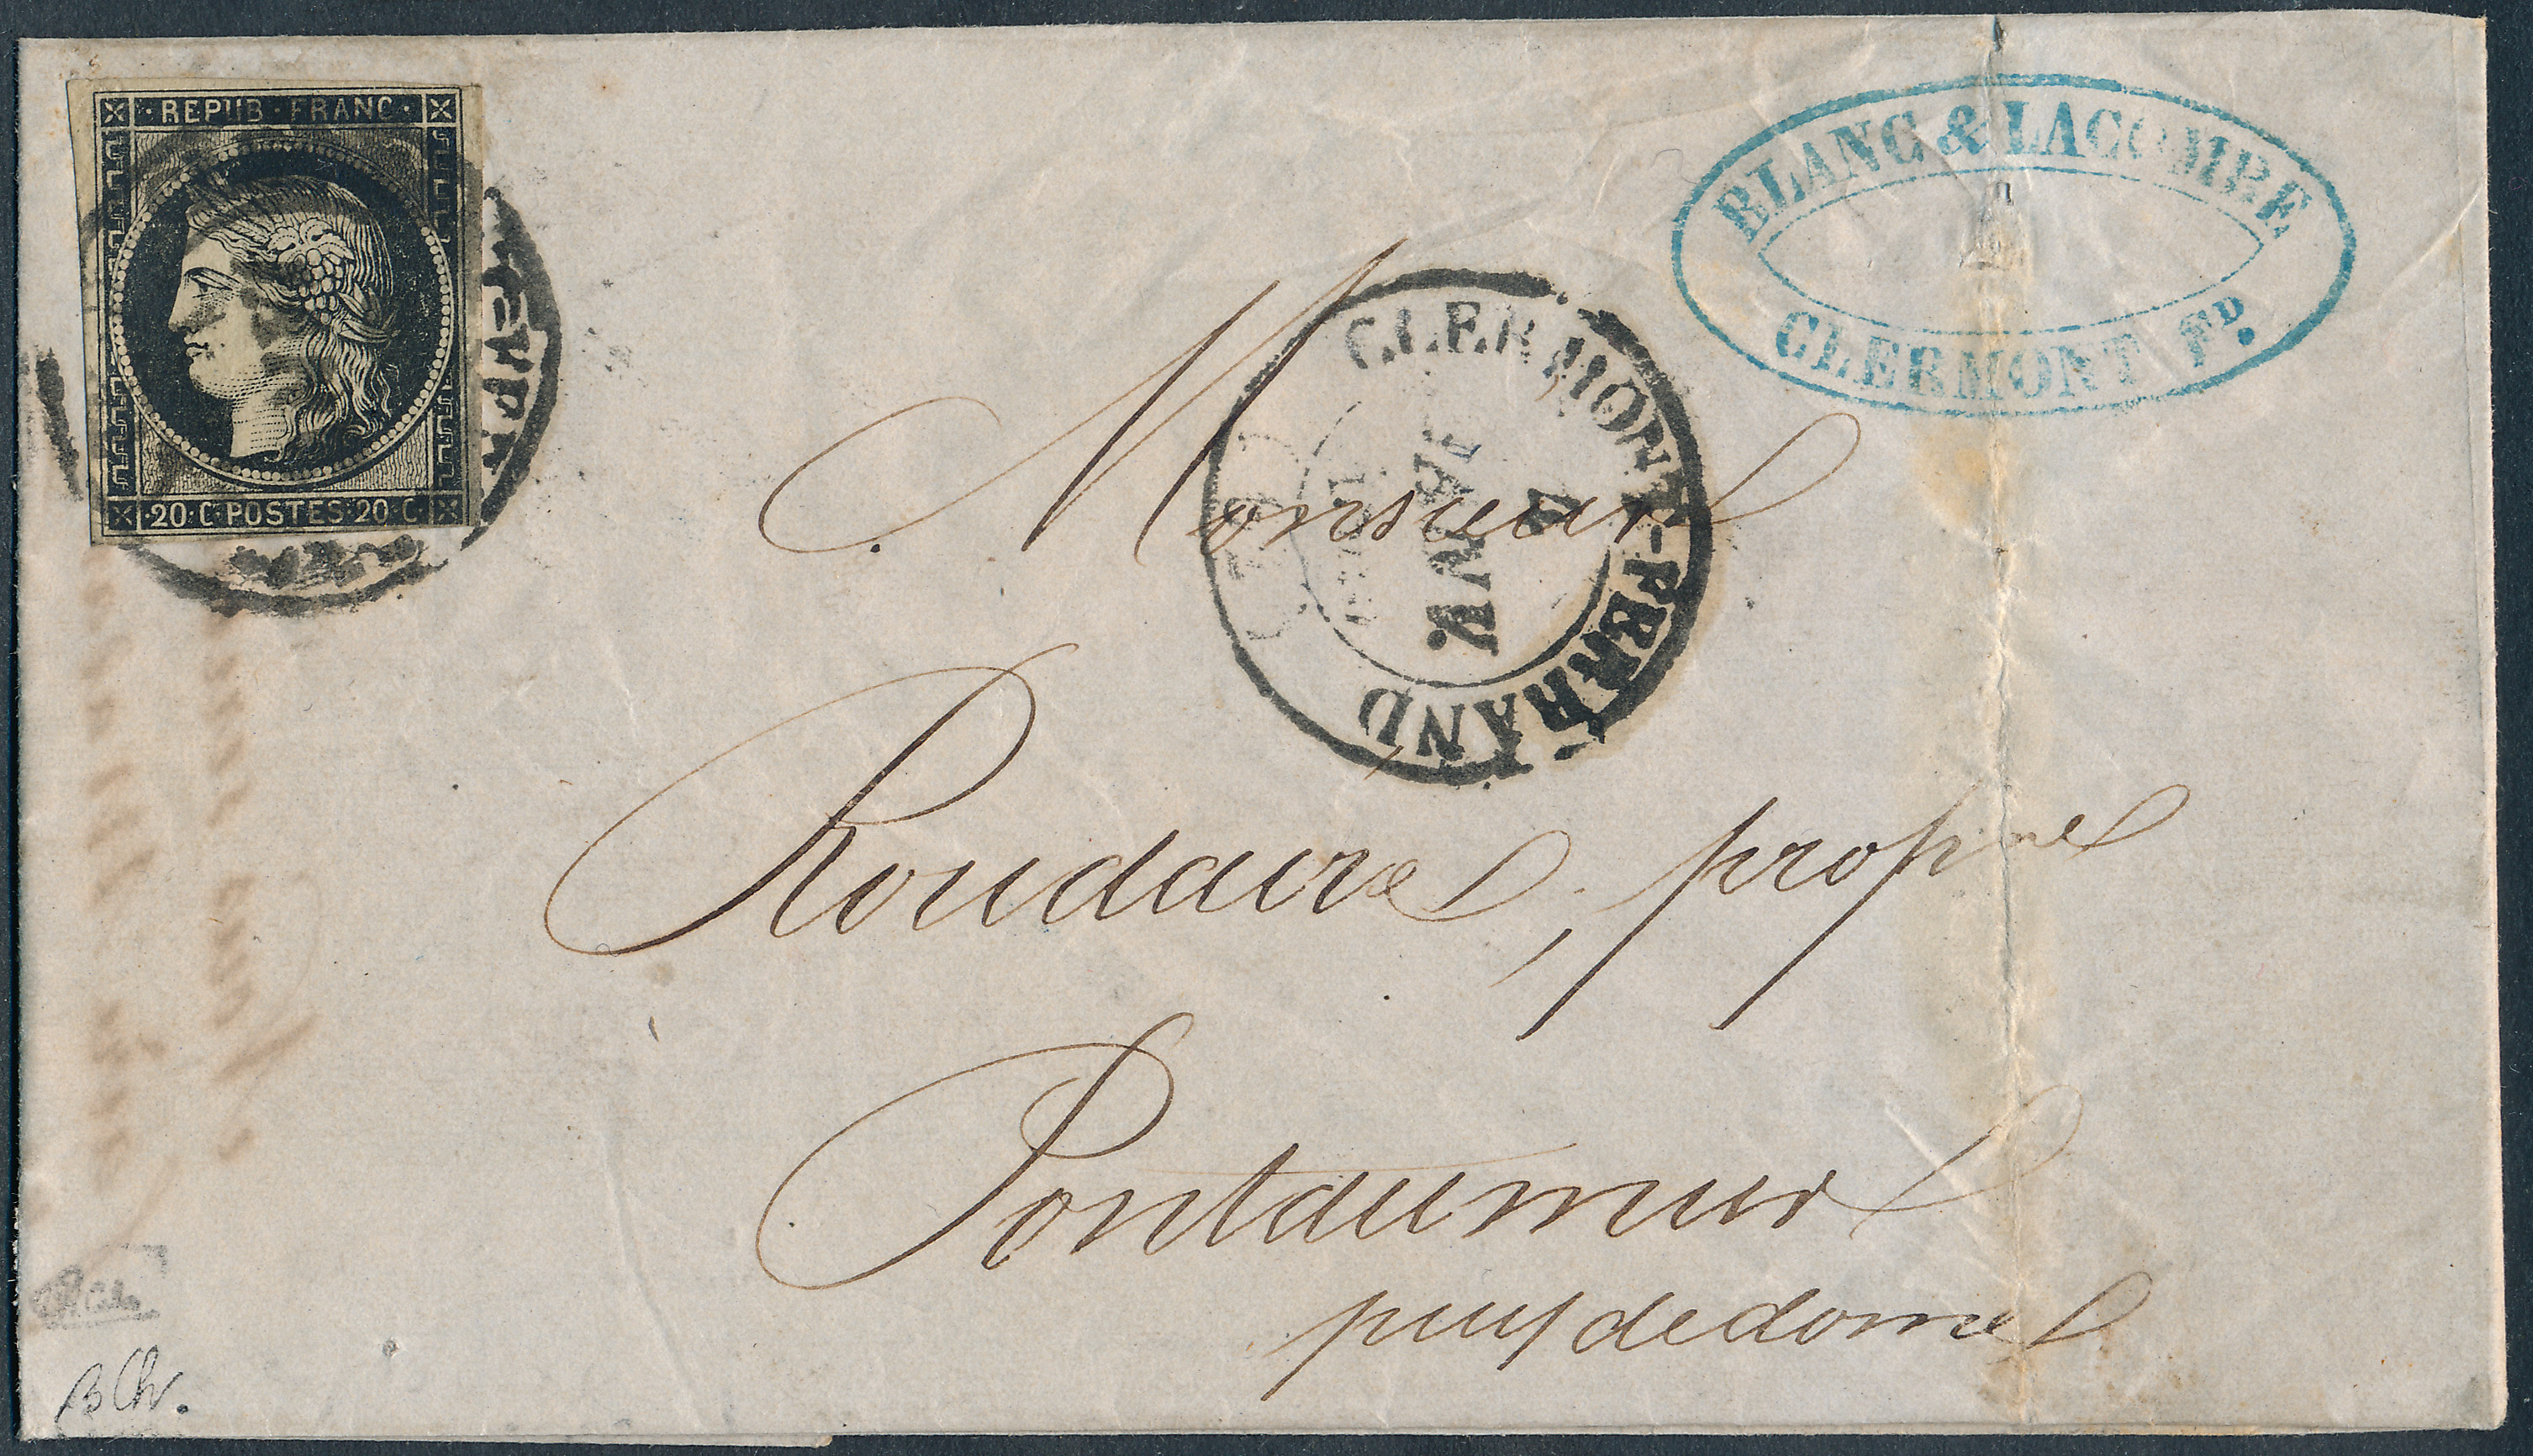 · REPUB · FRANC ·
· 20 · C · POSTES · 20 · C ·
BLANC & LACOMBE
CLERMONT Fᴰ.
CLERMONT-FERRAND
JANV.
Monsieur
Roudaire, propre
Pontaumur
puy de dome